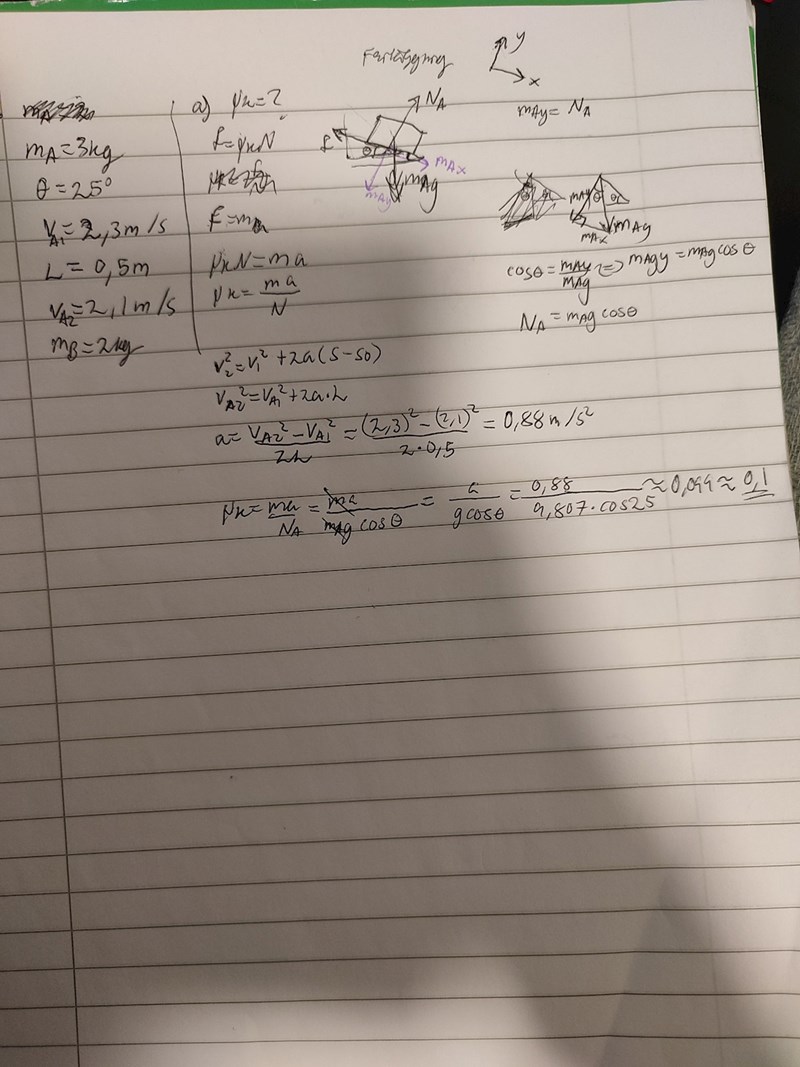 y
x
mA = 3kg
θ = 25°
VA1 = 2,3 m/s
L = 0,5m
VA2 = 2,1 m/s
mB = 2kg
a) μk = ?
f = μkN
F = ma
μkN = ma
μk = ma/N
NA
f
θ
mAx
mAy
mAg
mAy = NA
θ
mAy
mAx
mAg
cosθ = mAy/mAg <=> mAgy = mAg cosθ
NA = mAg cosθ
v2² = v1² + 2a(s-s0)
VA2² = VA1² + 2a·L
a = VA2² - VA1²/2L = (2,3)² - (2,1)²/2·0,5 = 0,88 m/s²
μk = ma/NA = ma/mAg cosθ = a/g cosθ = 0,88/9,807·cos25 ≈ 0,099 ≈ 0,1